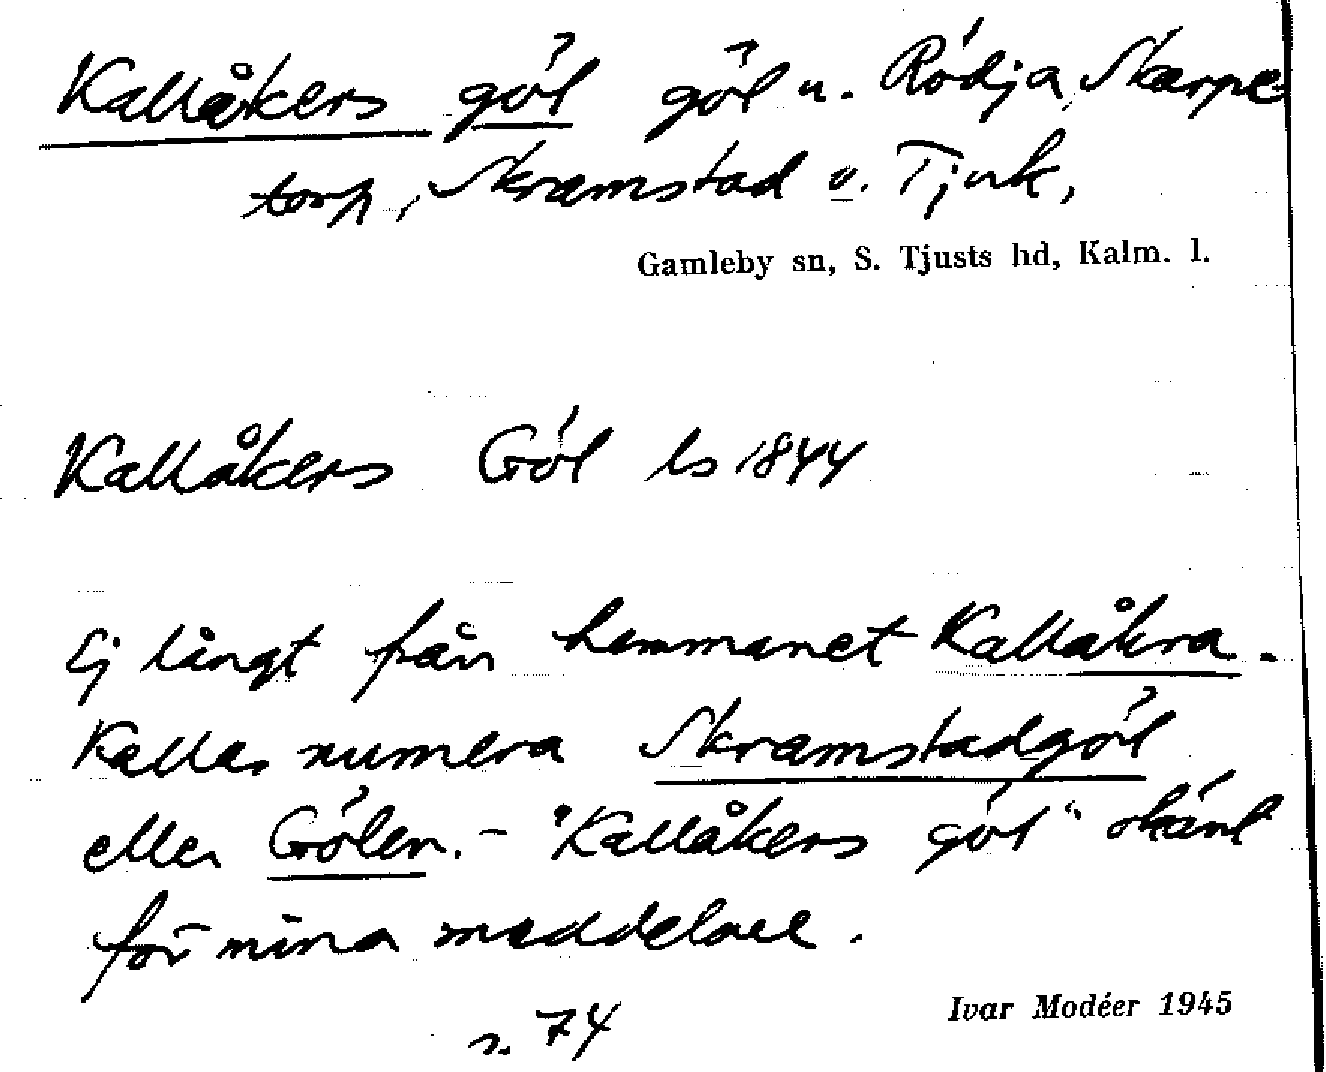 Kallåkers göl göl u. Rödja, Skarpe
torp, Skramstad o. Tjuk,
Gamleby sn, S. Tjusts hd, Kalm. l.
Kallåkers Göl ls 1844
Ej långt från hemmanet Kallåkra.
Kallas numera Skramstadgöl
eller Gölen. – "Kallåkers göl" okänt
för mina meddelare.
s. 74
Ivar Modéer 1945